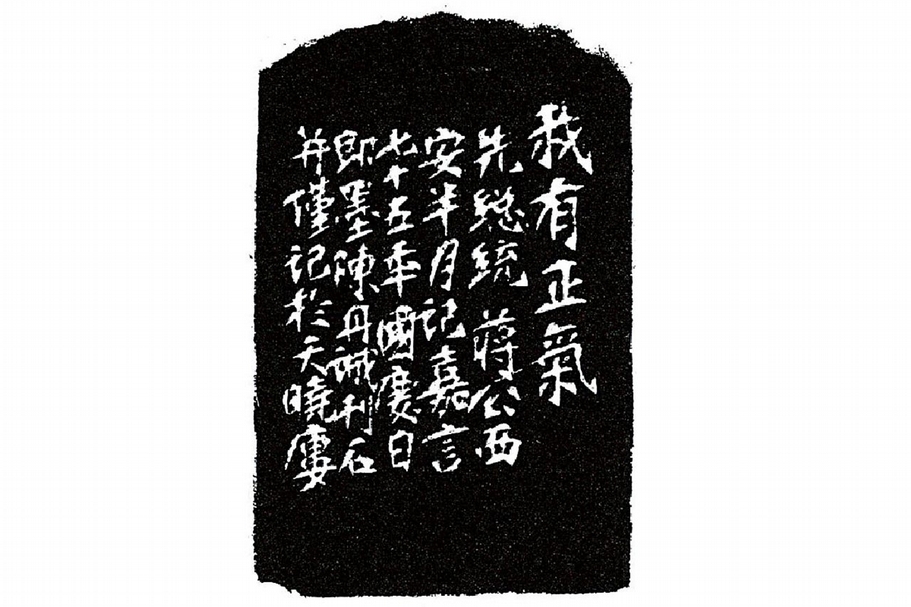 我有正氣
先總統 蔣公西
安半月記嘉言
七十五年國慶日
即墨陳丹誠刊石
并僅記於天曉廔